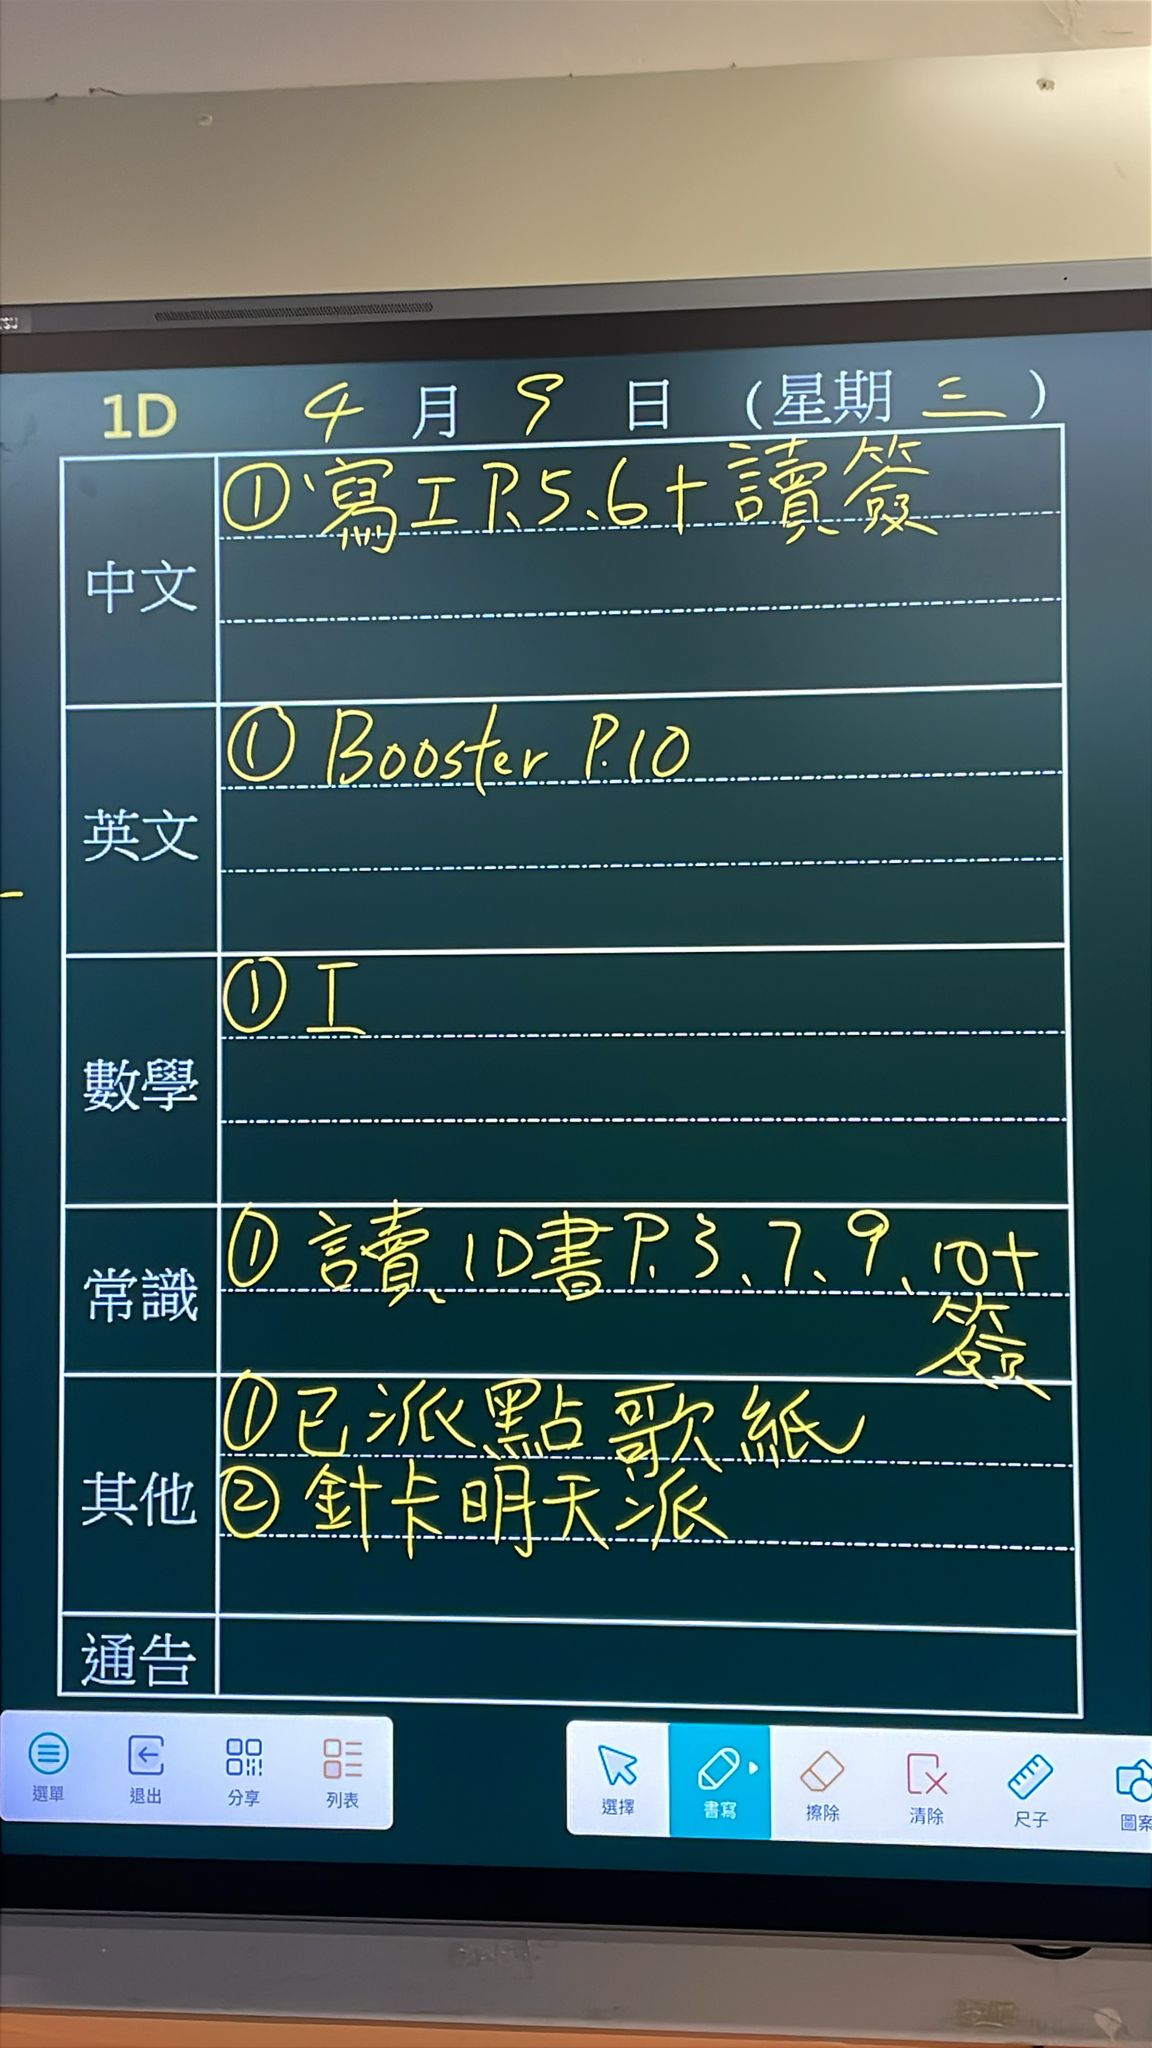 1D 4月9日(星期三)
中文
①寫工P.5、6+讀簽
英文
①Booster P.10
數學
①工
常識
①讀1D書P.3、7、9、10+
簽
其他
①已派點歌紙
②針卡明天派
通告
選單 退出 分享 列表 選擇 書寫 擦除 清除 尺子 圖案